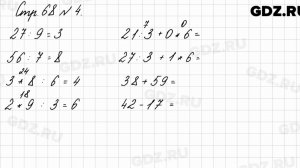 Стр. 68 № 4.
GDZ.RU
27 : 9 = 3
56 : 7 = 8
24
3 * 8 : 6 = 4
18
2 * 9 : 3 = 6
7 0
21 : 3 + 0 * 6 =
27 : 3 + 1 * 6 =
38 + 59 =
42 - 17 =
GDZ.RU